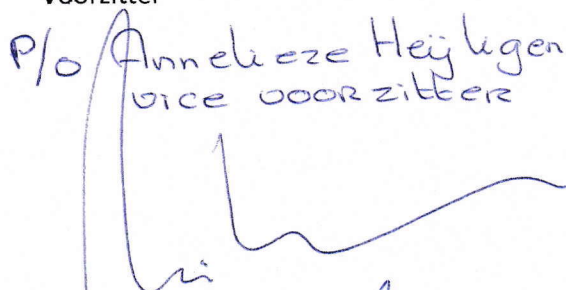 Voorzitter
P/o Annelieze Heijligen
vice voorzitter